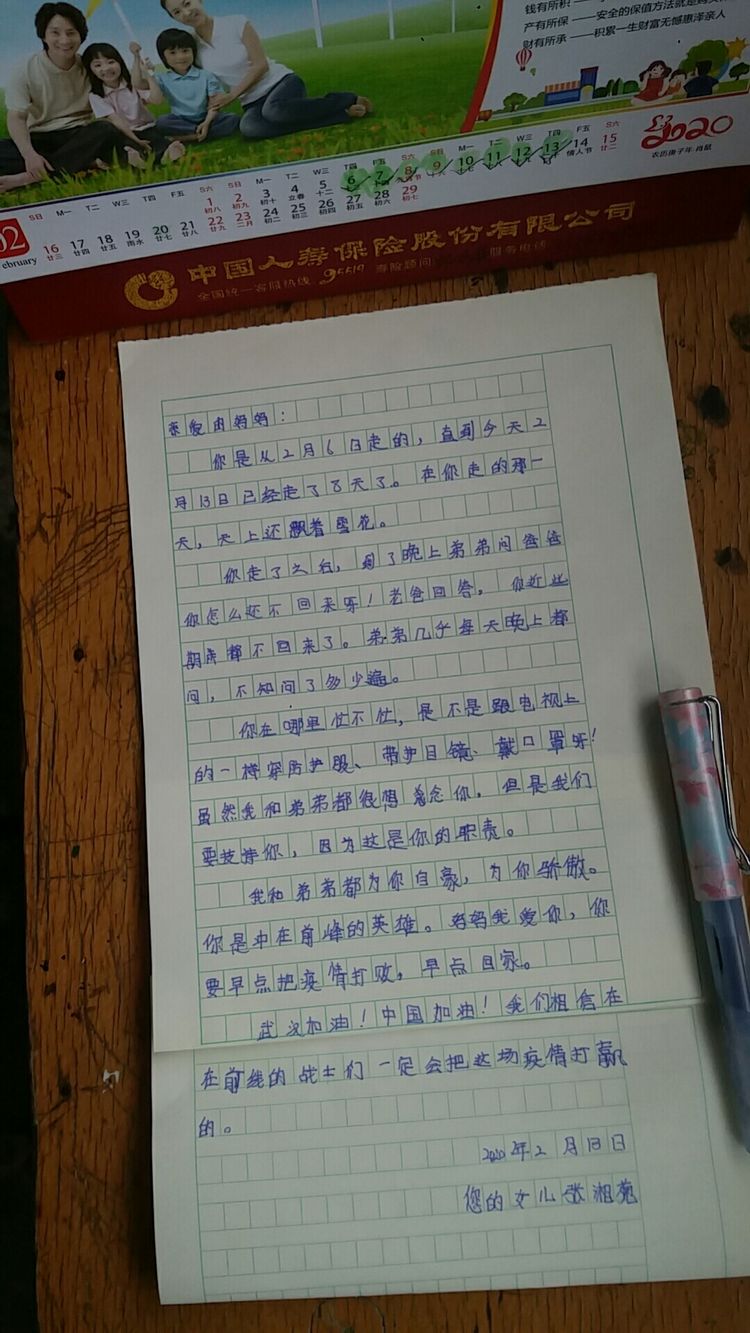 钱有所积
产有所保 —— 安全的保值方法就是购买
财有所承 —— 积累一生财富无憾惠泽亲人
2020
农历庚子年 肖鼠
S六 S日 M一 T二 W三 T四 F五 S六 S日 M一 T二 W三 T四 F五 S六
1 2 3 4 5 6 7 8 9 10 11 12 13 14 15
初八 初九 初十 立春 十二 元宵节 十六 十七 十八 情人节 廿二
02
ebruary
16 17 18 19 20 21 22 23 24 25 26 27 28 29
廿三 廿四 廿五 雨水 廿七 廿八 廿九 二月 初二 初三 初四 初五 初六 初七
中国人寿保险股份有限公司
全国统一客服热线 95519 寿险顾问 服务电话
亲爱的妈妈：
你是从2月6日走的，直到今天2
月13日已经走了8天了。在你走的那一
天，天上还飘着雪花。
你走了之后，到了晚上弟弟问爸爸
你怎么还不回来呀！老爸回答，你近些
期末都不回来了。弟弟几乎每天晚上都
问，不知问了多少遍。
你在哪里忙不忙，是不是跟电视上
的一样穿防护服、带护目镜、戴口罩呀！
虽然我和弟弟都很想念你，但是我们
要支持你，因为这是你的职责。
我和弟弟都为你自豪，为你骄傲。
你是冲在前峰的英雄。妈妈我爱你，你
要早点把疫情打败，早点回家。
武汉加油！中国加油！我们相信在
在前线的战士们一定会把这场疫情打赢
的。
2020年2月13日
您的女儿张湘菀